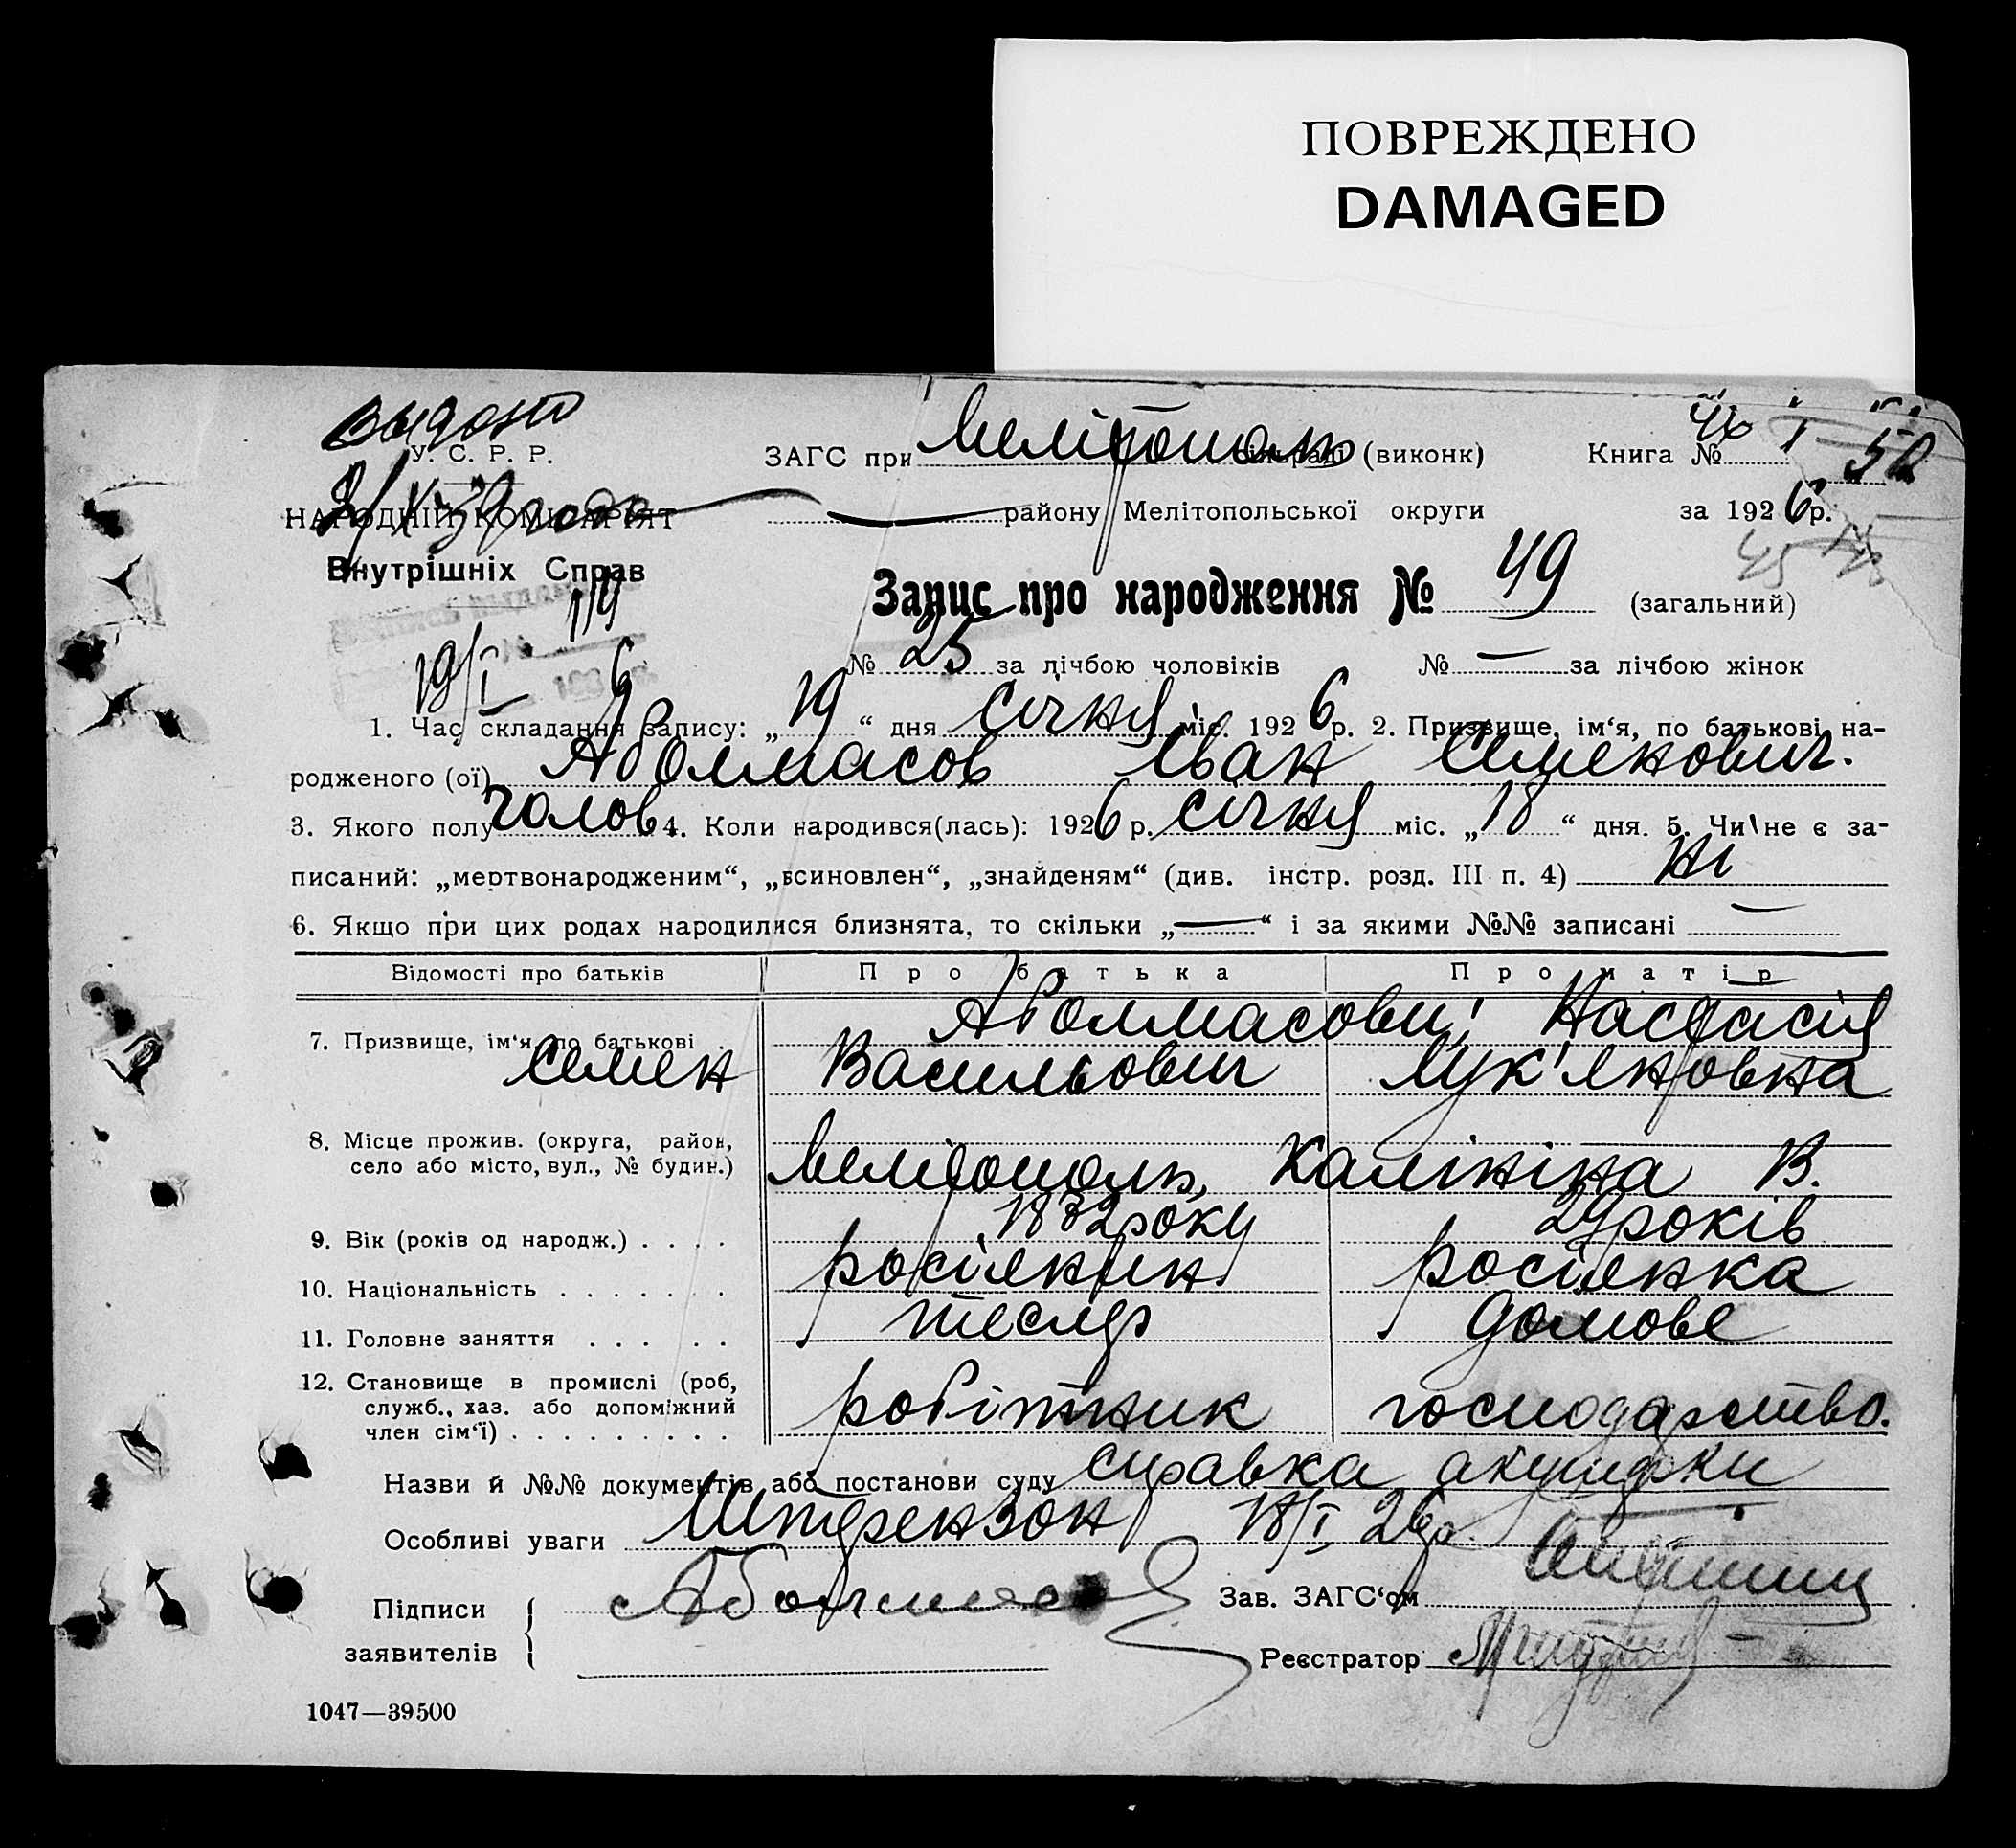 ПОВРЕЖДЕНО
DAMAGED
видано
У. С. Р. Р.
НАРОДНІЙ КОМІСАРІЯТ
Внутрішніх Справ
ЗАГС при Мелітополь сільраді (виконк) Книга №
46 I 52
— району Мелітопольської округи за 1926 р.
45
Запис про народження № 49 (загальний)
№ 25 за лічбою чоловіків № — за лічбою жінок
19/I 6
1. Час складання запису: „19“ дня січня міс. 1926 р. 2. Призвище, ім‘я, по батькові на-
родженого (ої) Аболмасов Іван Семенович.
3. Якого полу чолов 4. Коли народився(лась): 1926 р. січня міс. „18“ дня. 5. Чи не є за-
писаний: „мертвонародженим“, „всиновлен“, „знайденям“ (див. інстр. розд. III п. 4) ні
6. Якщо при цих родах народилися близнята, то скільки „—“ і за якими №№ записані —
Відомості про батьків Про батька Про матір
7. Призвище, ім‘я, по батькові Аболмасови: Настасія
Семен Васильович Лук'яновна
8. Місце прожив. (округа, район,
село або місто, вул., № будин.) Мелітополь, Калініна В.
9. Вік (років од народж.) . . . . 1882 року 29 років
10. Національність . . . . . . . росіянин росіянка
11. Головне заняття . . . . . тесляр домове
12. Становище в промислі (роб,
служб., хаз. або допоміжний
член сім‘ї) . . . . . . . . . робітник господарство.
Назви й №№ документів або постанови суду справка акушерки
Особливі уваги Штрензон 18/I 26р.
Підписи
заявителів
Аболмасов
Зав. ЗАГС‘ом
Реєстратор
1047—39500